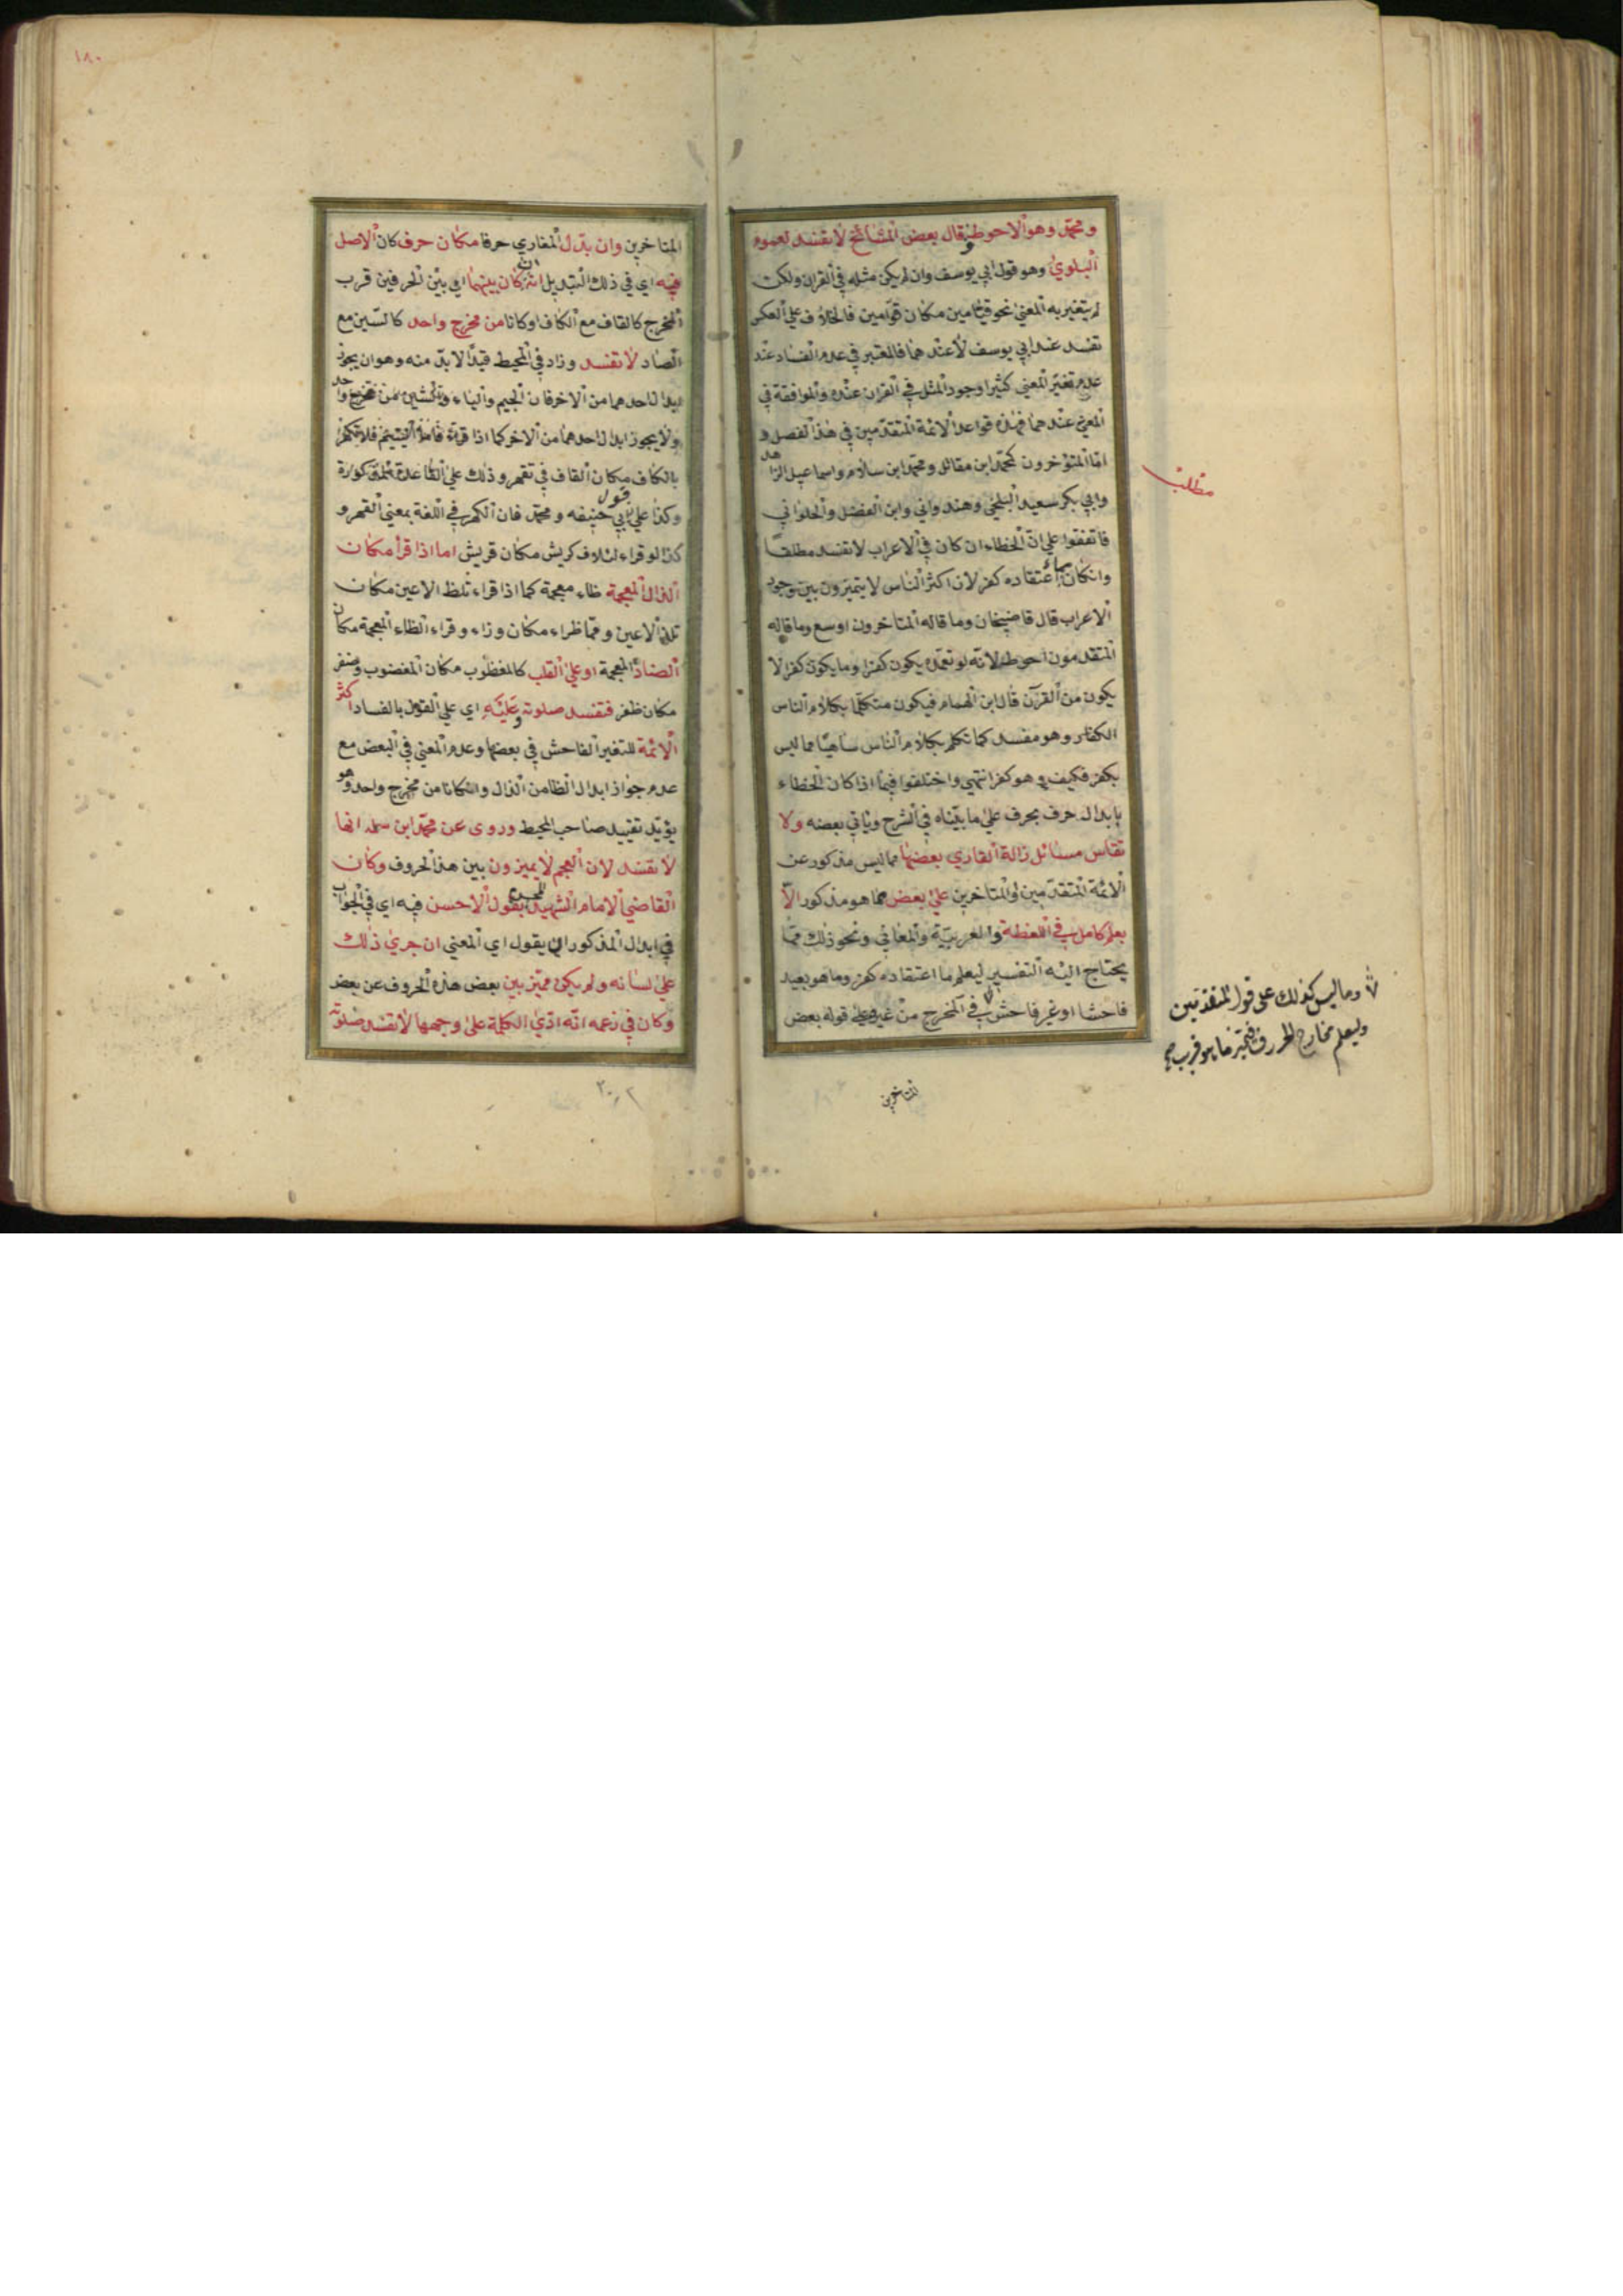 ومحمد وهو الاحوط وقال بعض المشائخ لا تفسد لعموم
البلوي وهو قول ابي يوسف وان لم يكن مثله في القران ولكن
لم يتغير به المعني نحو قيامين مكان قوامين فالخلاف علي العكس
تفسد عند ابي يوسف لا عندهما فالمعتبر في عدم الفساد عند
عدم تغير المعني كثيرا وجود المثل في القران عنده والموافقة في
المعني عندهما فهذه قواعد الائمة المتقدمين في هذا الفصل و
اما المتؤخرون كمحمد ابن مقاتل ومحمد ابن سلام واسماعيل الزاهد
وابي بكر سعيد البلخي وهندواني وابن الفضل والحلواني
فاتفقوا علي ان الخطاء ان كان في الاعراب لا تفسد مطلقا
وانكان مما اعتقاده كفر لان اكثر الناس لا يتميزون بين وجوه
الاعراب قال قاضيخان وما قاله المتاخرون اوسع وما قاله
المتقدمون احوط لانه لو تعمده يكون كفرا وما يكون كفرا لا
يكون من القرآن قال ابن الهمام فيكون متكلما بكلام الناس
الكفار وهو مفسد كما تكلم بكلام الناس ساهيا مما ليس
بكفر فكيف وهو كفر انتهي واختلفوا فيما اذا كان الخطاء
بابدال حرف بحرف علي ما بيناه في الشرح وياتي بعضه ولا
تقاس مسائل زالة القاري بعضها مما ليس مذكور عن
الائمة المتقدمين او المتاخرين علي بعض مما هو مذكور الا
بعلم كامل في اللغظة والعربية والمعاني ونحو ذلك مما
يحتاج اليه التفسير ليعلم ما اعتقاده كفر وما هو بعيد
فاحشا او غير فاحش في المخرج من غيره علي قوله بعض
مطلب
وما ليس كذلك علي قول المتقدمين
وليعلم مخارج الحروف فيتميز ما هو قريب
المتاخرين
١٨٠
المتاخرين وان بدل المقاري حرفا مكان حرف كان الاصل
فيه اي في ذلك التبديل انه ان كان بينهما اي بين الحرفين قرب
المخرج كالقاف مع الكاف او كانا من مخرج واحد كالسين مع
الصاد لا تفسد وزاد في المحيط قيدا لا بد منه وهو ان يجوز
ابدال احدهما من الاخر فان الجيم والياء والشين من مخرج واحد
ولا يجوز ابدال احدهما من الاخر كما اذا قرء فاما اليتيم فلا تكهر
بالكاف مكان القاف في تقهر وذلك علي القاعدة المذكورة
وكذا علي قول ابي حنيفه ومحمد فان الكهر في اللغة بمعني القهر و
كذا لو قراء لئلاف كريش مكان قريش اما اذا قرأ مكان
الذال المعجمة ظاء معجمة كما اذا قراء تلظ الاعين مكان
تلذ الاعين ومما ظراء مكان وزاء وقراء الظاء المعجمة مكان
الضاد المعجمة او علي القلب كالمغظوب مكان المغضوب وضفر
مكان ظفر فتفسد صلوته وعليه اي علي القول بالفساد اكثر
الائمة للتغير الفاحش في بعضها وعدم المعني في البعض مع
عدم جواز ابدال الظا من الذال وانكانا من مخرج واحد وهو
يؤيد تقييد صاحب المحيط وروي عن محمد ابن سلمه انها
لا تفسد لان العجم لا يميزون بين هذا الحروف وكان
القاضي الامام الشهيد المحسن يقول الاحسن فيه اي في الجواب
في ابدال المذكور ان يقول اي المعني ان جري ذلك
علي لسانه ولم يكن مميز بين بعض هذه الحروف عن بعض
وكان في زعمه انه ادي الكلمة علي وجهها لا تفسد صلوته